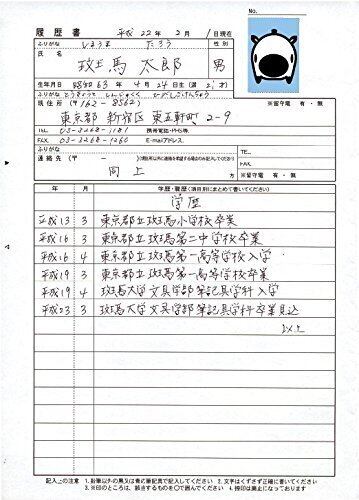 履歴書 平成 22年 2月 1日現在
ふりがな しまうま たろう 性別
氏名 斑馬 太郎 男
生年月日 昭和63年 4月 24日生(満21才)
ふりがな とうきょうと しんじゅくく ひがしごけんちょう
現住所(〒162-8562) ※留守電 有・無
東京都 新宿区 東五軒町 2-9
TEL. 03-3268-1181 携帯電話・PHS等.
FAX. 03-3268-1260 E-mailアドレス.
ふりがな TEL.
連絡先(〒 - )
FAX.
方 ※留守電 有・無
同上
年 月 学歴・職歴(項目別にまとめて書いてください)
学歴
平成13 3 東京都立斑馬小学校卒業
平成16 3 東京都立斑馬第二中学校卒業
平成16 4 東京都立斑馬第一高等学校入学
平成19 3 東京都立斑馬第一高等学校卒業
平成19 4 斑馬大学文具学部筆記具学科入学
平成23 3 斑馬大学文具学部筆記具学科卒業見込
以上
記入上の注意 1.鉛筆以外の黒又は青の筆記具で記入してください。 2.文字はくずさず正確に書いてください。
3.※印のところは、該当するものを○で囲んでください。 4.捺印は廃止になっております